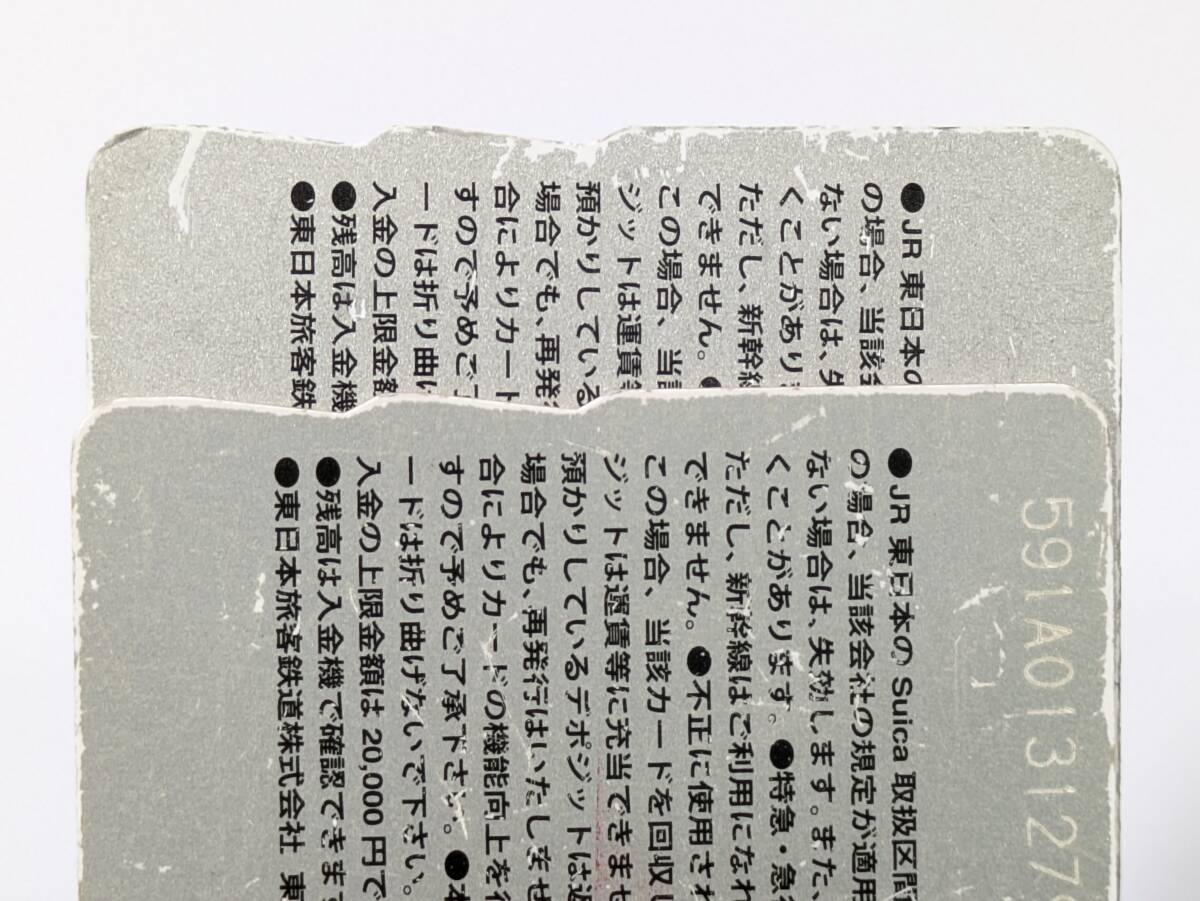 ●JR 東日本の
の場合、当該会
ない場合は、失
くことがあり
ただし、新幹線
できません。●
この場合、当該
ジットは運賃等
預かりしている
場合でも、再発
合によりカード
すので予めご了
ードは折り曲げ
入金の上限金額
●残高は入金機
●東日本旅客鉄
591A013127
●JR 東日本の Suica 取扱区間
の場合、当該会社の規定が適用
ない場合は、失効します。また、
くことがあります。●特急・急行
ただし、新幹線はご利用になれ
できません。●不正に使用され
この場合、当該カードを回収し
ジットは運賃等に充当できませ
預かりしているデポジットは返
場合でも、再発行はいたしませ
合によりカードの機能向上を行
すので予めご了承下さい。●本
ードは折り曲げないで下さい。
入金の上限金額は 20,000 円で
●残高は入金機で確認できます
●東日本旅客鉄道株式会社 東